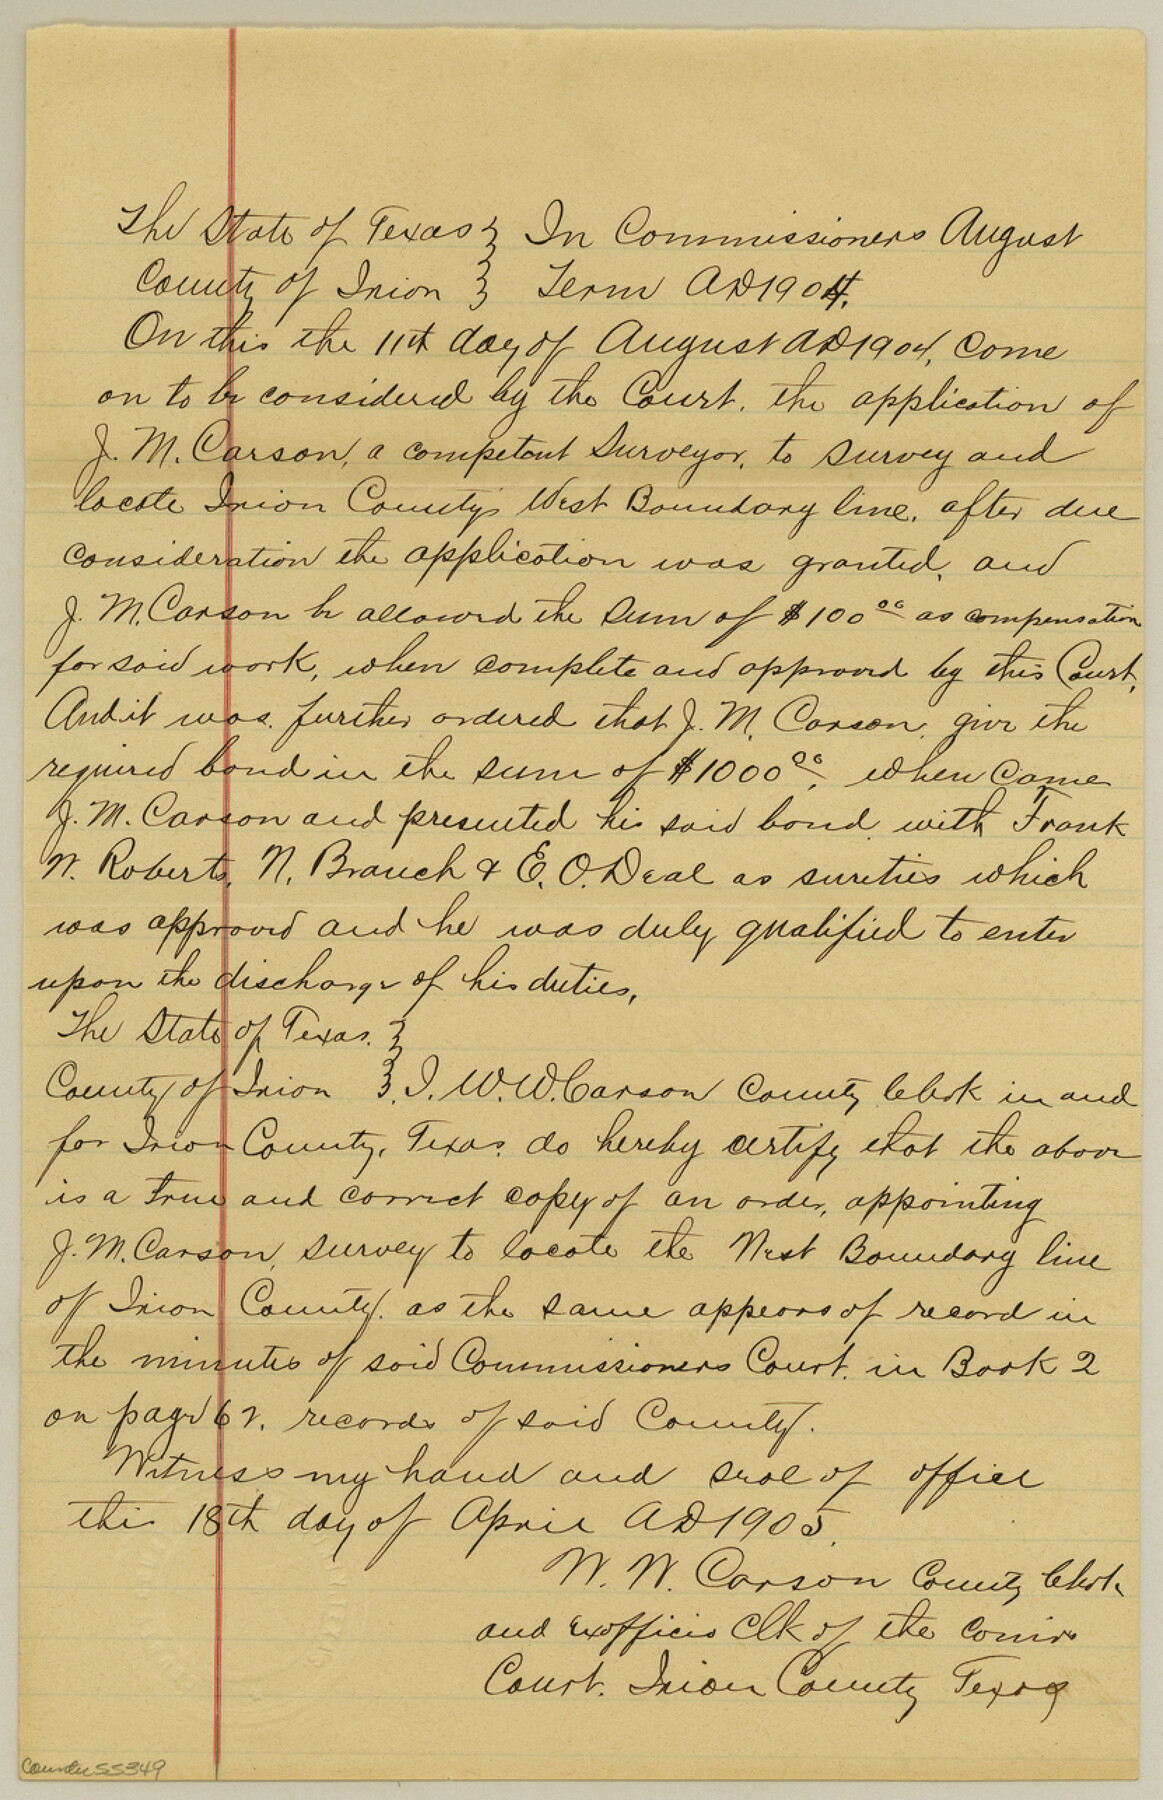 The State of Texas } In Commissioners August
County of Irion } Term AD 1904.
On this the 11th day of August AD 1904, come
on to be considered by the Court. the application of
J. M. Carson, a competent Surveyor, to survey and
locate Irion County's West Boundary line. after due
consideration the application was granted, and
J. M. Carson be allowed the sum of $100 00 as compensation
for said work, when complete and approved by this Court,
And it was further ordered that J. M. Carson, give the
required bond in the sum of $1000 00, when came
J. M. Carson and presented his said bond with Frank
W. Roberts, N. Branch & E. O. Deal as sureties which
was approved and he was duly qualified to enter
upon the discharge of his duties,
The State of Texas. }
County of Irion }. I. W. W. Carson County Clerk in and
for Irion County, Texas. do hereby certify that the above
is a true and correct copy of an order, appointing
J. M. Carson, survey to locate the West Boundary line
of Irion County. as the same appears of record in
the minutes of said Commissioners Court. in Book 2
on page 62. records of said County.
Witness my hand and seal of office
this 18th day of April AD 1905.
W. W. Carson County Clerk
and exofficio Clk of the Comrs
Court. Irion County Texas
Counter 55349